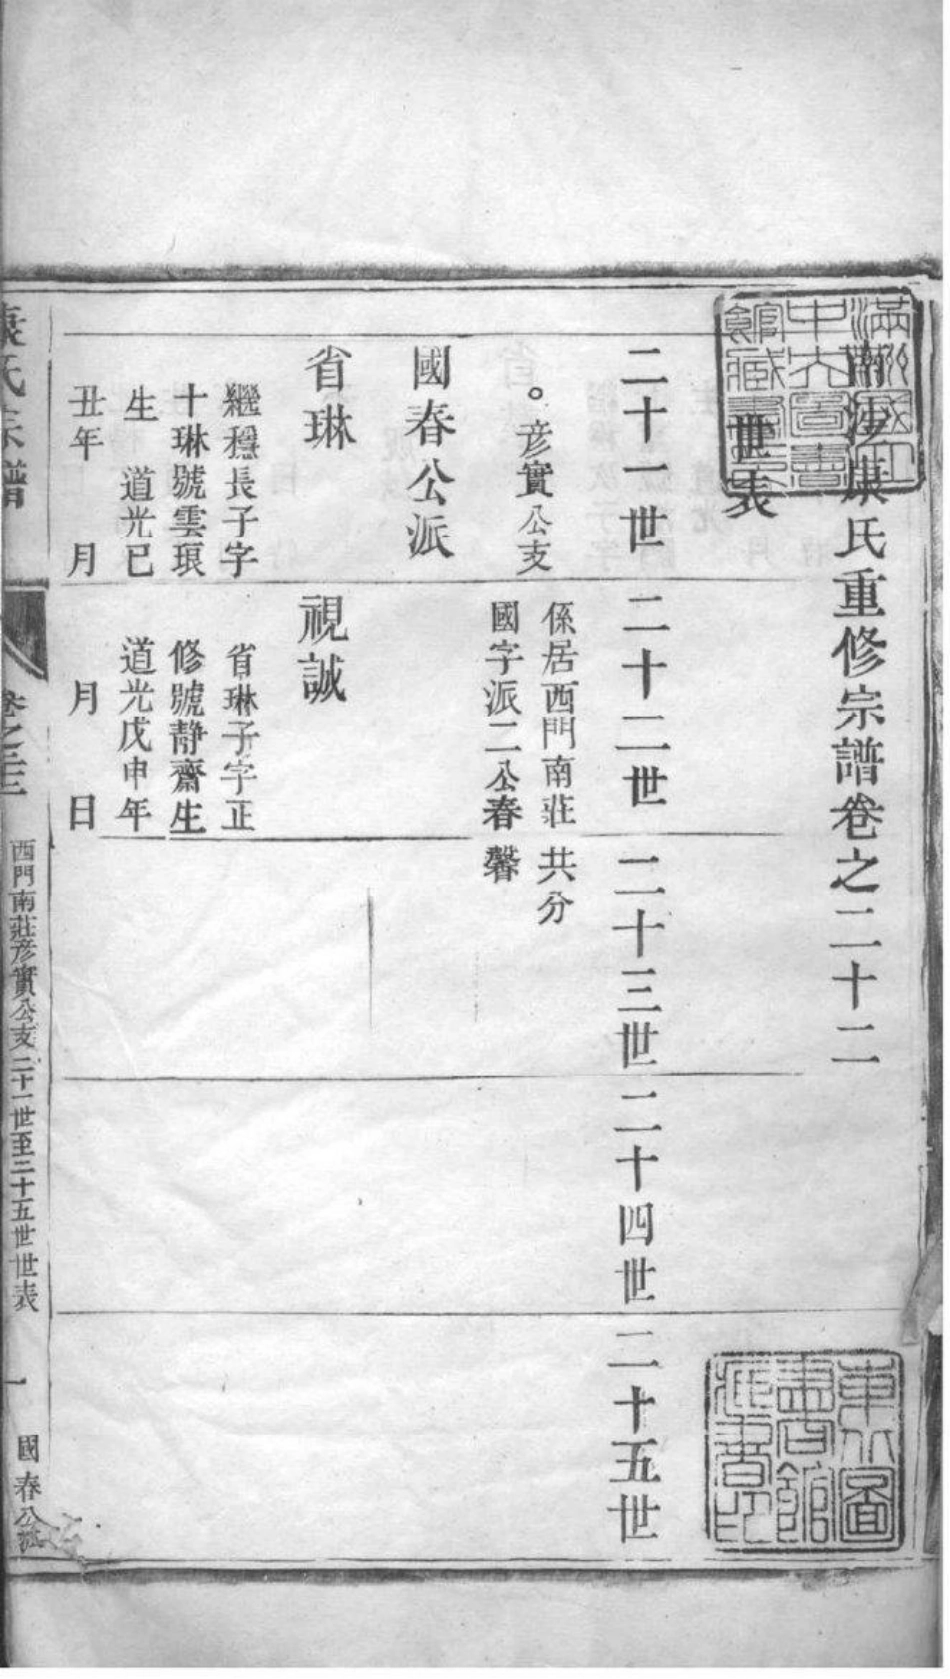 南沙氏重修宗譜卷之二十二
世表
二十一世 二十二世 二十三世 二十四世 二十五世
係居西門南莊共分
。彦實公支
國字派二公春馨
國春公派
省琳
繼穩長子字
十琳號雲琅
生 道光已
丑年 月
視誠
省琳子字正
修號靜齋生
道光戊申年
月 日
氏宗譜
卷之二十二
西門南莊彦實公支二十一世至二十五世世表
一
國春公派
東北圖
書館
藏書印